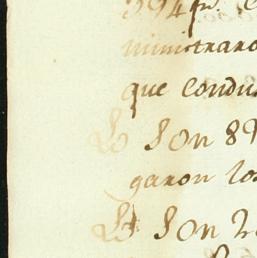 394
ministraro
que condu
Son 89
garon los
Son 2